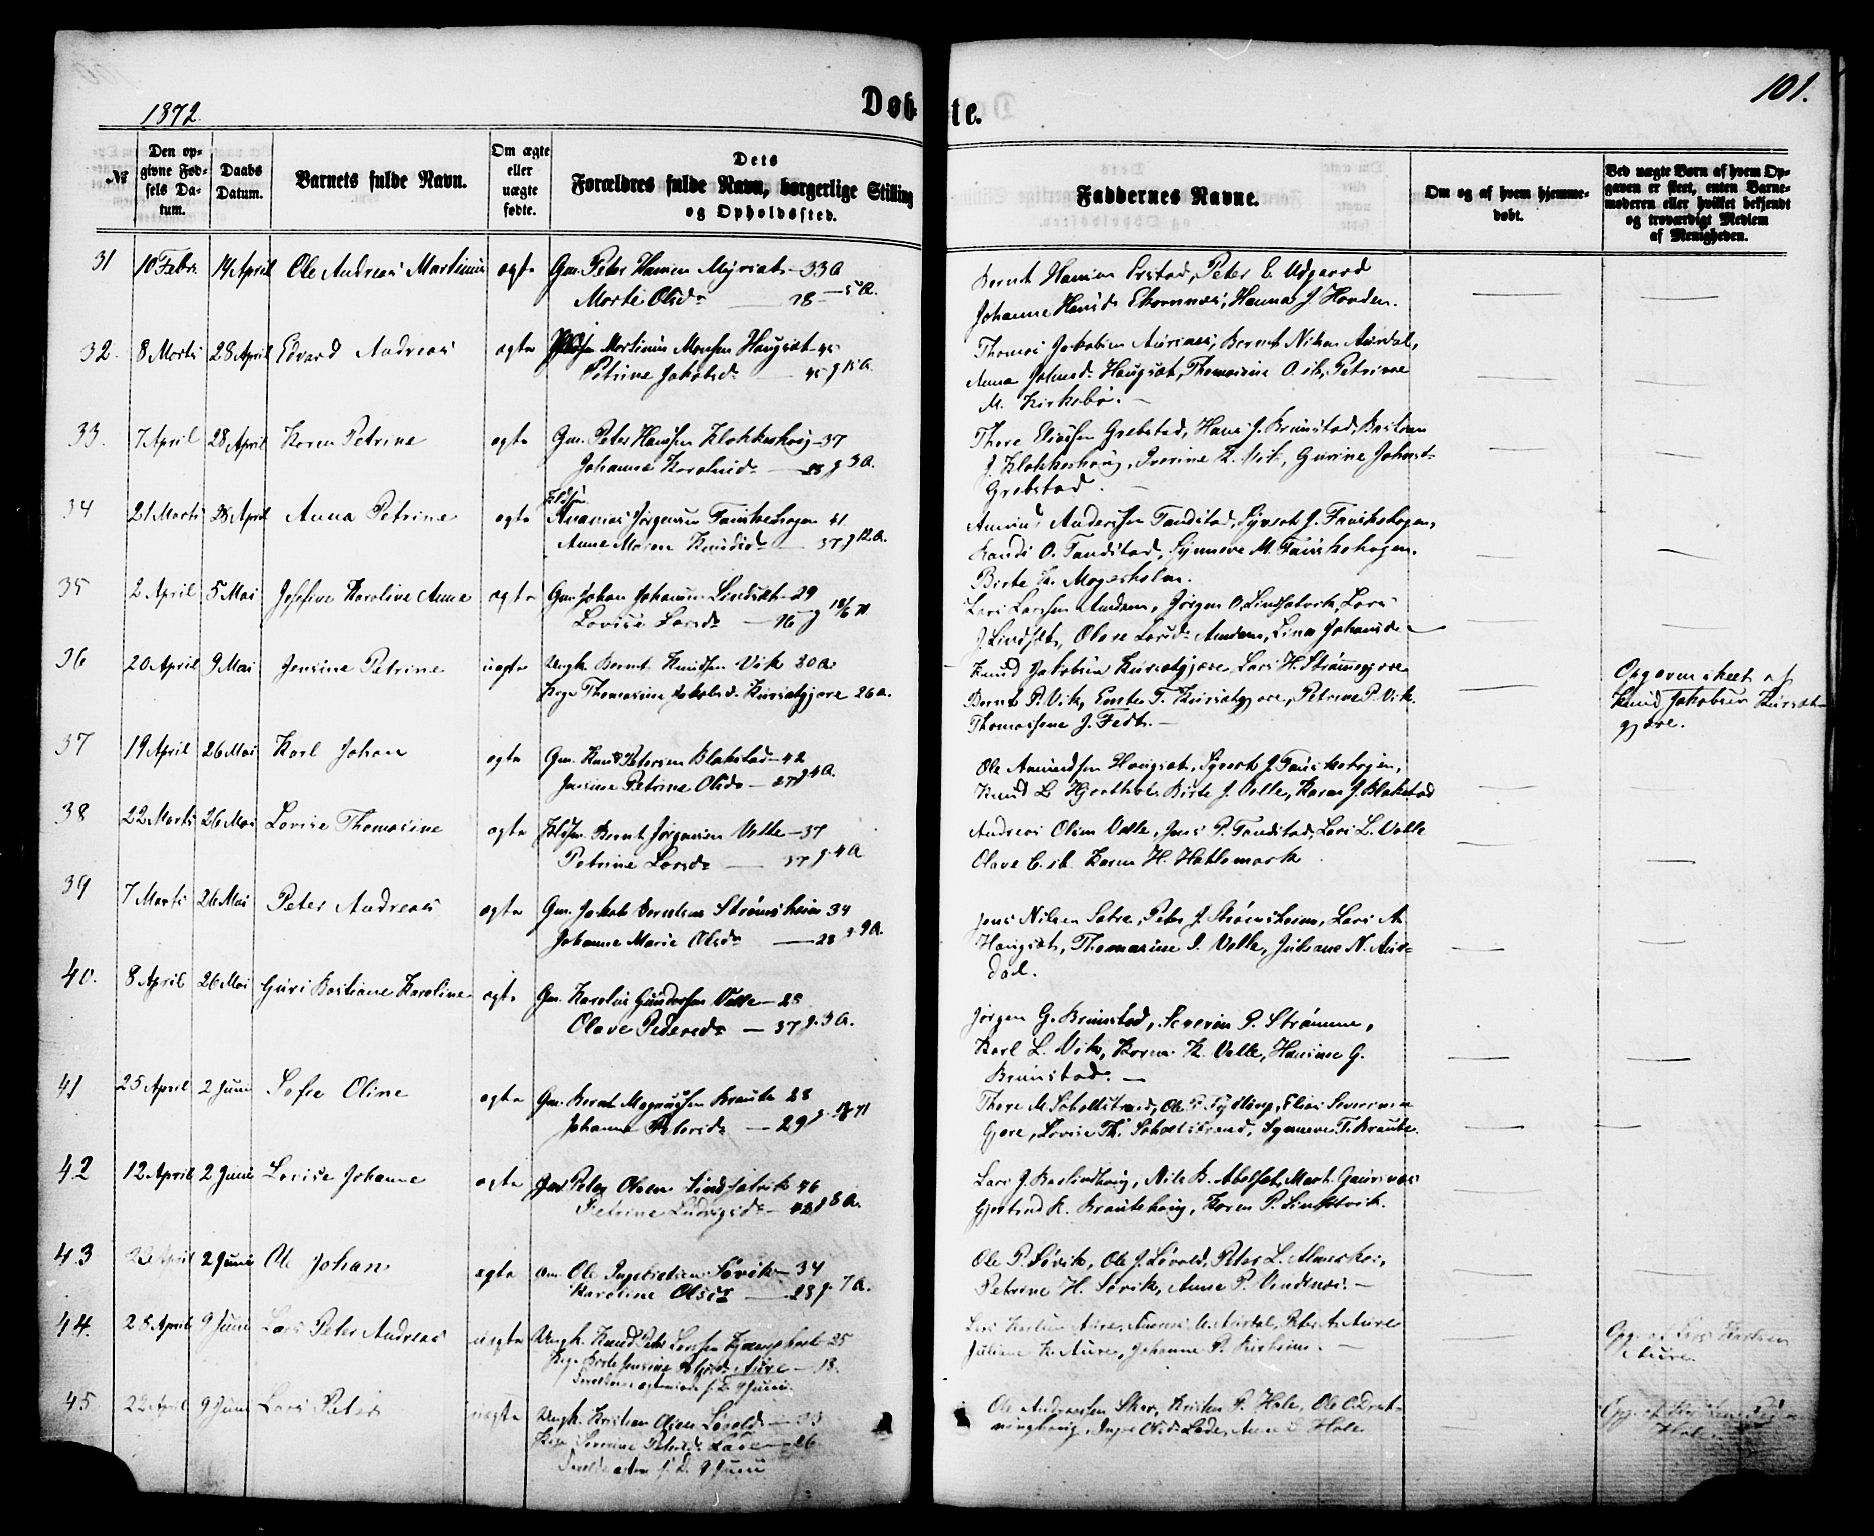 1872.
Døb
te.
101.
№
Den opgivne Fødsels Datum.
Daabs Datum.
Barnets fulde Navn.
Om ægte eller uægte fødte.
Dets Forældres fulde Navn, borgerlige Stilling og Opholdssted.
Faddernes Navne.
Om og af hvem hjemmedøbt.
Ved uægte Børn af hvem Opgaven er skeet, enten Barnemoderen eller hvilket bekjendt og troværdigt Medlem af Menigheden.
31 10 Febr. 14 April Ole Andreas Martinius ægte Gm. Peter Hansen Myrsæt 33 a
Marte Olsdr 28 5 a.
Bernt Hansen Ørstad, Peter E. Udgaard
Johanne Hansd. Ekornnæs, Hanna J. Hovden.
32. 8 Marts 28 April Edvard Andreas ægte Martinus Monsen Haugset 45
Petrine Jakobsdr 45 g 15 a.
Thomas Jakobsen Aurenæs, Bernt Nilsen Aurdal,
Anna Johnsdr Haugsæt, Thomasine O. ib., Petrine
M. Kirkebø.
33. 7 April 28 April Karen Petrine ægte Gm. Peter Hansen Klokkerhoug 37
Johanne Karolusdr 23 g 3 a.
Thore Eliassen Grebstad, Hans J. Brunstad, Bastian
J. Klokkerhoug, Iverine K. Vik, Gurine Johnsd.
Grebstad.
34 21 Marts 28 April Anna Petrine ægte
Rasmus Jørgensen Fauskehagen 41
Anne Maren Knudsdr 37 g 12 a.
Amund Anderssen Tandstad, Syvert J. Fauskehagen,
Randi O. Tandstad, Synneve M. Fauskehagen.
Birte Magerholm.
35 2 April 5 Mai Josefine Karoline Anna ægte Gm. Johan Johannsen Lindset 29
Lovise Larsdr 26 g 18/6 71
Lars Larssen Amdam, Jørgen O. Lindsetvik, Lars
J. Lindset, Olave Larsdr Amdam, Lina Johansdr
36 20 April 9 Mai Jensine Petrine uægte Ungk. Bernt Knudsen Vik 30 a.
Pige Thomasine Jakobsd. Kursetgjære 26 a.
Knud Jakobsen Kursetgjære, Lars H. Strømmegjære
Bernt P. Vik, Emte T. Kursetgjære, Petrine P. Vik.
Thomassine J. Fedt.
Opgaven skeet af
Knud Jakobsen Kursetgjære.
37 19 April 26 Mai Karl Johan ægte Gm. Knud Petersen Blakstad 42
Jensine Petrine Olsdr 27 g 4 a.
Ole Amundsen Haugset, Syvert J. Fauskehagen,
Knud L. Hjorthol, Birte J. Velle, Karen J. Blakstad
38 22 Marts 26 Mai Lovise Thomasine ægte Bernt Jørgensen Velle 37
Petrine Larsdr 37 g. 4 a
Andreas Olsen Velle, Jens P. Tandstad, Lars L. Velle
Olave E. ib. Karen H. Hatlemark
39 7 Marts 26 Mai Peter Andreas ægte Gm. Jakob Berntsen Strømsheim 34
Johanne Marie Olsdr 28 g 9 a.
Jens Nilsen Sætre, Peter J. Strømsheim, Lars A.
Haugset, Thomasine J. Velle, Juliane N. Aurdal.
40. 8 April 26 Mai Guri Bastiane Karoline ægte Gm. Karolus Gundersen Velle 25
Olave Pedersdr 37 g. 3 a.
Jørgen G. Brunstad, Severin P. Strømme,
Karl L. Vik, Karen K. Velle, Hansine G.
Brunstad.
41 25 April 2 Juni Sofie Oline ægte Gm. Bernt Magnussen Braute 28
Johanne Petersdr 29 g.
Thore M. Scholtstrand, Ole P. Fyllling, Elias Severinsen
Gjære, Lovise Th. Scholtstrand, Synneve T. Braute.
42 12 April 2 Juni Lovise Johanne ægte Gm. Peter Olsen Lindsetvik 46
Petrine Ludvigsdr 42 g 8 a.
Lars J. Barlindhoug, Nils B. Abelset, Mart. Gausnæs
Gjertrud K. Brautehoug, Karen P. Lindsetvik.
43 22 April 2 Juni Ole Johan ægte Gm. Ole Ingebretsen Søvik 34
Karoline Olsdr 28 g. 7 a.
Ole P. Søvik, Ole J. Løvold, Peter L. Almeskar,
Petrine H. Søvik, Anne P. Vindsnes.
44. 28 April 9 Juni Lars Peter Andreas uægte Ungk. Knud Peter Larsen 25
Pige Jensine Aure 18.
9 Juni
Lars Karlsen Aure, Peter A. Aure
Juliane K. Aure, Johanne P.
Opg. af Lars Karlsen
Aure.
45. 22 April 9 Juni Lars Peter uægte Ungk. Kristian Olsen Løvold 33
Pige Severine Petersd. Lade 26
9 Juni
Ole Andreassen Skar, Kristen P. Hole, Ole
Olsdr Lade, Anne Hole
Opg. af
Hole.